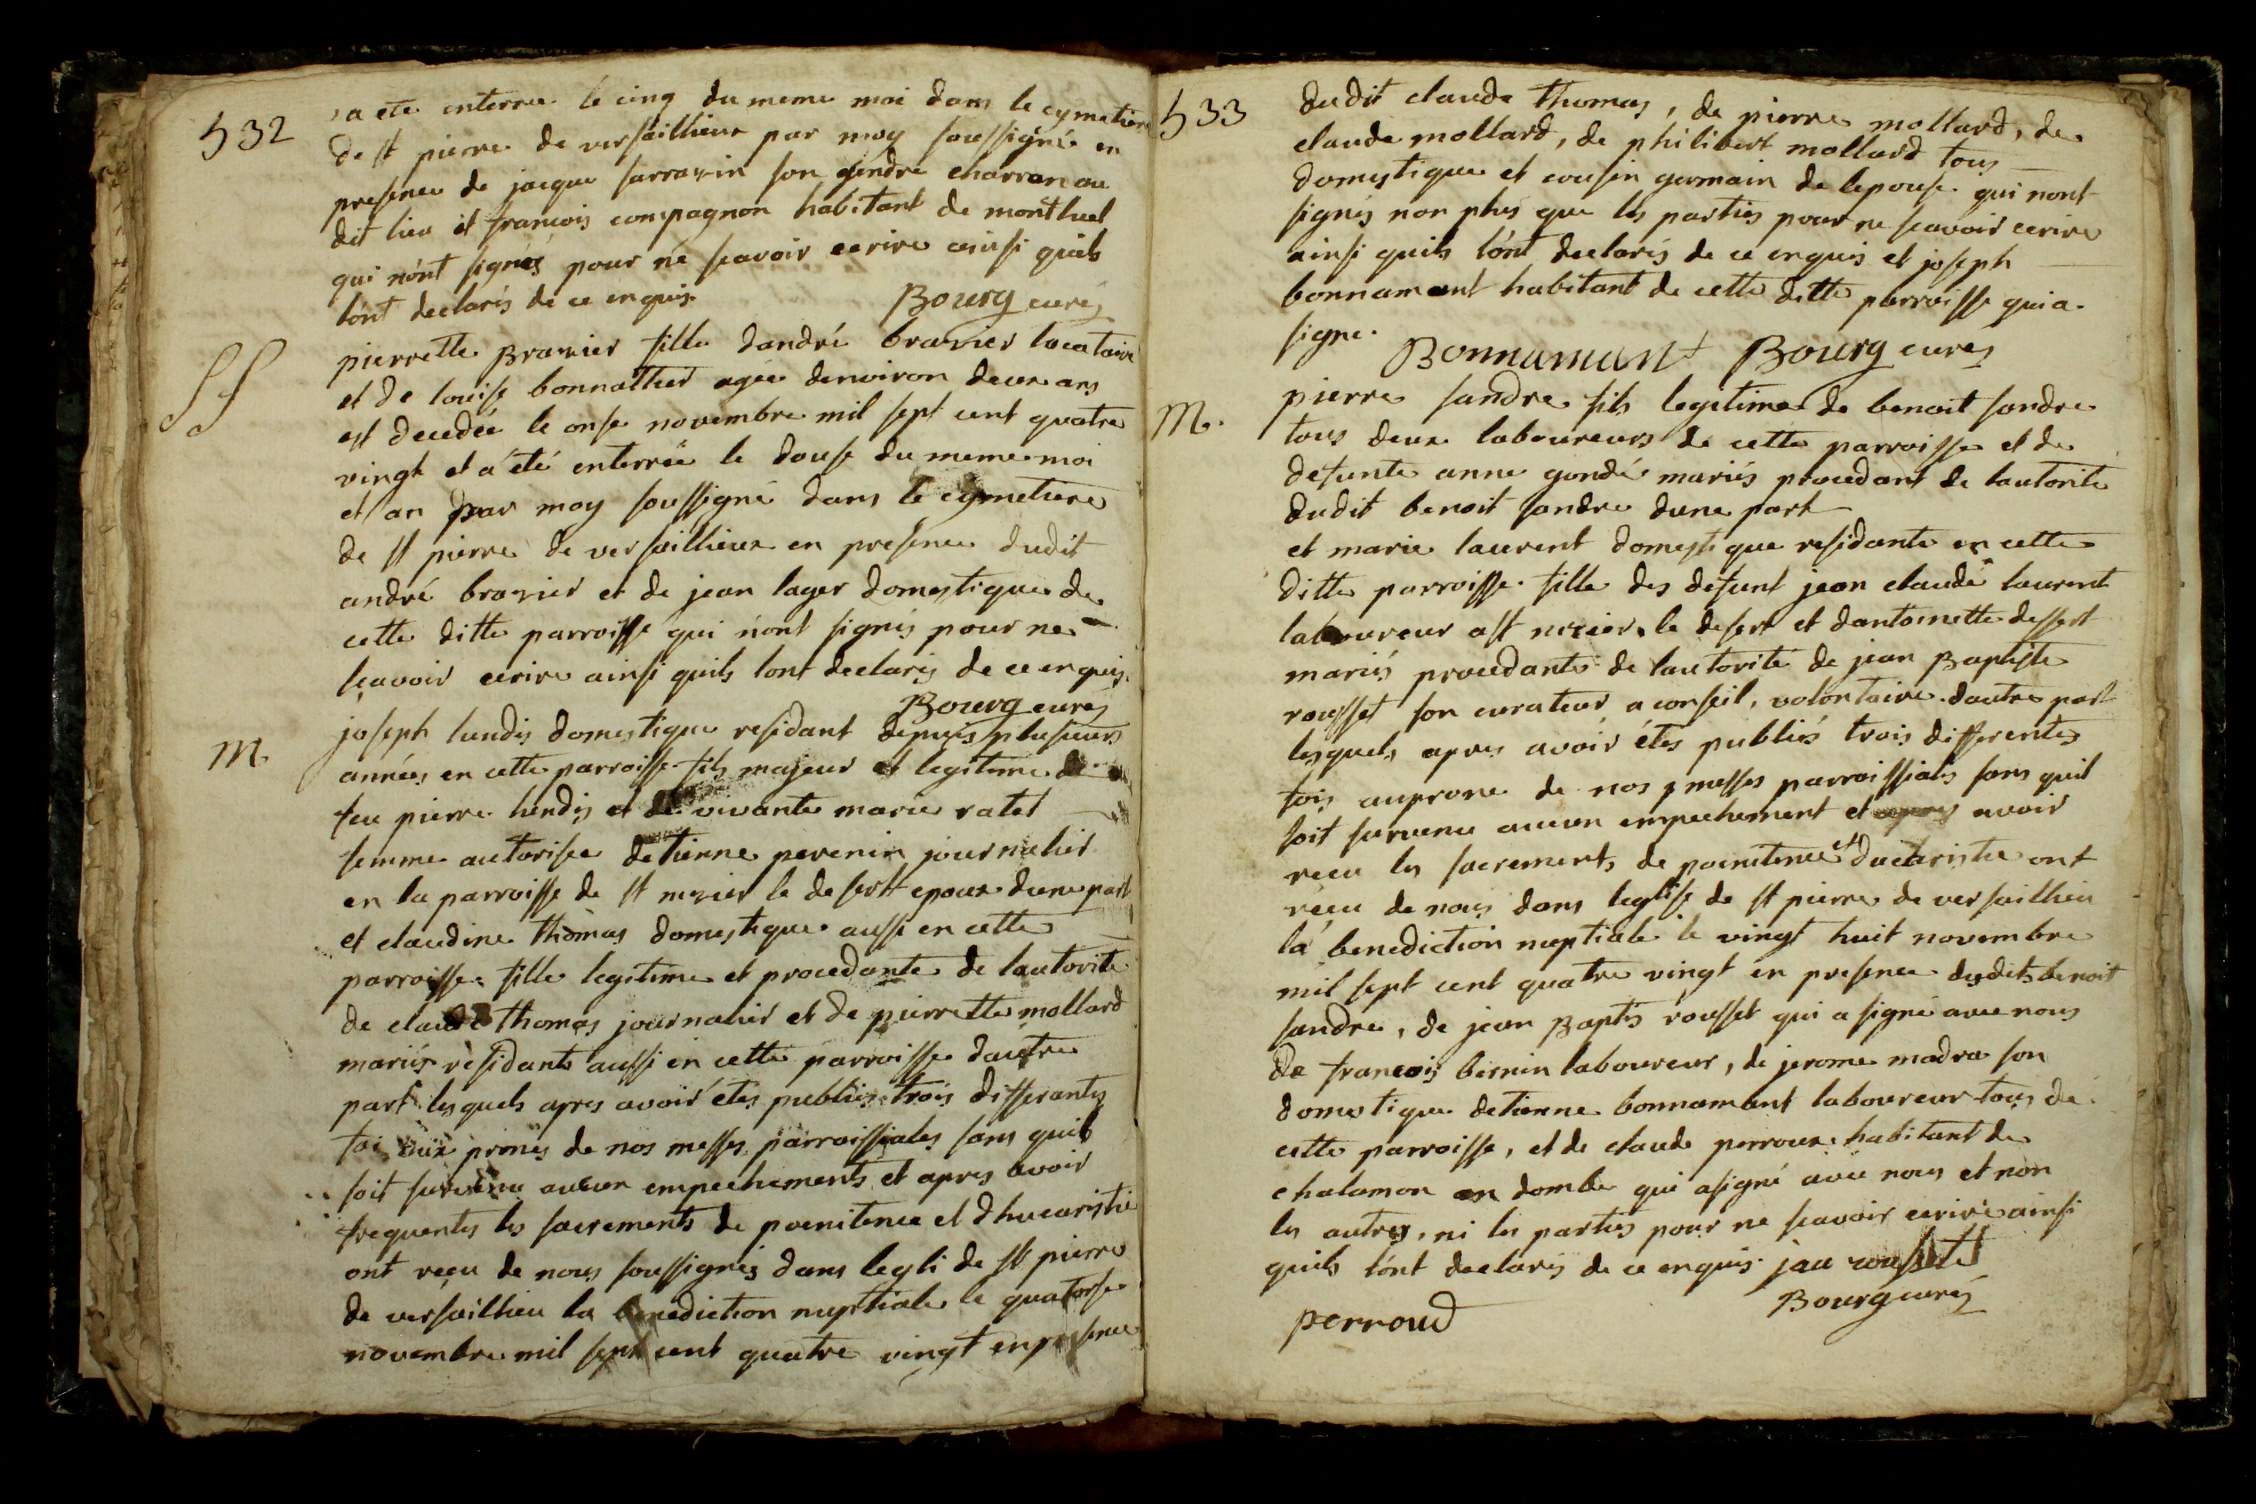 532
a ete enterree le cinq du meme moi dans le cymetiere
de st pierre de versaillieux par moy soussigné en
presence de jacque sarrazin son gendre charron au
dit lieu et francois compagnon habitant de montluel
qui n'ont signés pour ne scavoir ecrire ainsi quils
l'ont declarés de ce enquis.
Bourg curé
ss
pierrette Brazier fille dandré brazier locataire
et de louise bonnattier agee denviron deux ans
est decedée le onse novembre mil sept cent quatre
vingt et a été enterrée le douse du meme moi
et an par moy soussigné dans le cymetiere
de st pierre de versaillieux en presence dudit
andré brazier et de jean lager domestique de
cette ditte parroisse qui n'ont signés pour ne
scavoir ecrire ainsi quils lont declarés de ce enquis.
Bourg curé
m.
joseph lundis domestique residant depuis plusieurs
années en cette parroisse fils majeur et legitime de
feu pierre lundis et de vivante marie ratet
femme autorisee detienne pevenin journalier
en la parroisse de st nizier le desert epoux dune part
et claudine thomas domestique aussi en cette
parroisse fille legitime et procedante de lautorite
de claude thomas journalier et de pierrette mollard
mariés residants aussi en cette parroisse dautre
part lesquels apres avoir étes publiés trois differantes
foi aux prones de nos messes parroissiales sans quils
soit survenu aucun empechements et apres avoir
frequentes les sacrements de poenitence et dhucaristie
ont reçu de nous soussignés dans legli de st pierre
de versaillieu la benediction nuptiale le quatorse
novembre mil sept cent quatre vingt en presence
533
dudit claude thomas, de pierre mollard, de
claude mollard, de philibert mollard tous
domestique et cousin germain de lepouse qui n'ont
signés non plus que les parties pour ne scavoir ecrire
ainsi quils l'ont declarés de ce enquis et joseph
bonnamant habitant de cette ditte parroisse qui a
signe.
Bonnamant Bourg curé
m.
pierre sandre fils legitime de benoit sandre
tous deux laboureurs de cette parroisse et de
defunte anne gondé mariés procedant de lautorite
dudit benoit sandre dune part
et marie laurent domestique residante en cette
ditte parroisse fille des defunt jean claude laurent
laboureur ast nizier le desert et dantoinette dessert
mariés procedante de lautorité de jean Baptiste
rousset son curateur a conseil, volontaire dautre part
lesquels apres avoir étes publiés trois differentes
fois auprone de nos messes parroissials sans quil
soit survenu aucun empechement et apres avoir
recu les sacrements de poenitence et ducaristie ont
réçu de nous dans leglise de st pierre de versaillieu
la benediction nuptiale le vingt huit novembre
mil sept cent quatre vingt en presence desdits benoit
sandre, de jean Baptis rousset qui a signé avec nous
de francois bernin laboureur, de jerome madra son
domestique detienne bonnamant laboureur tous de
cette parroisse, et de claude perroux habitant de
chalamon en dombe qui a signé avec nous et non
les autres, ni les parties pour ne scavoir ecrire ainsi
quils l'ont declarés de ce enquis. jau rousset
perroud Bourg curé